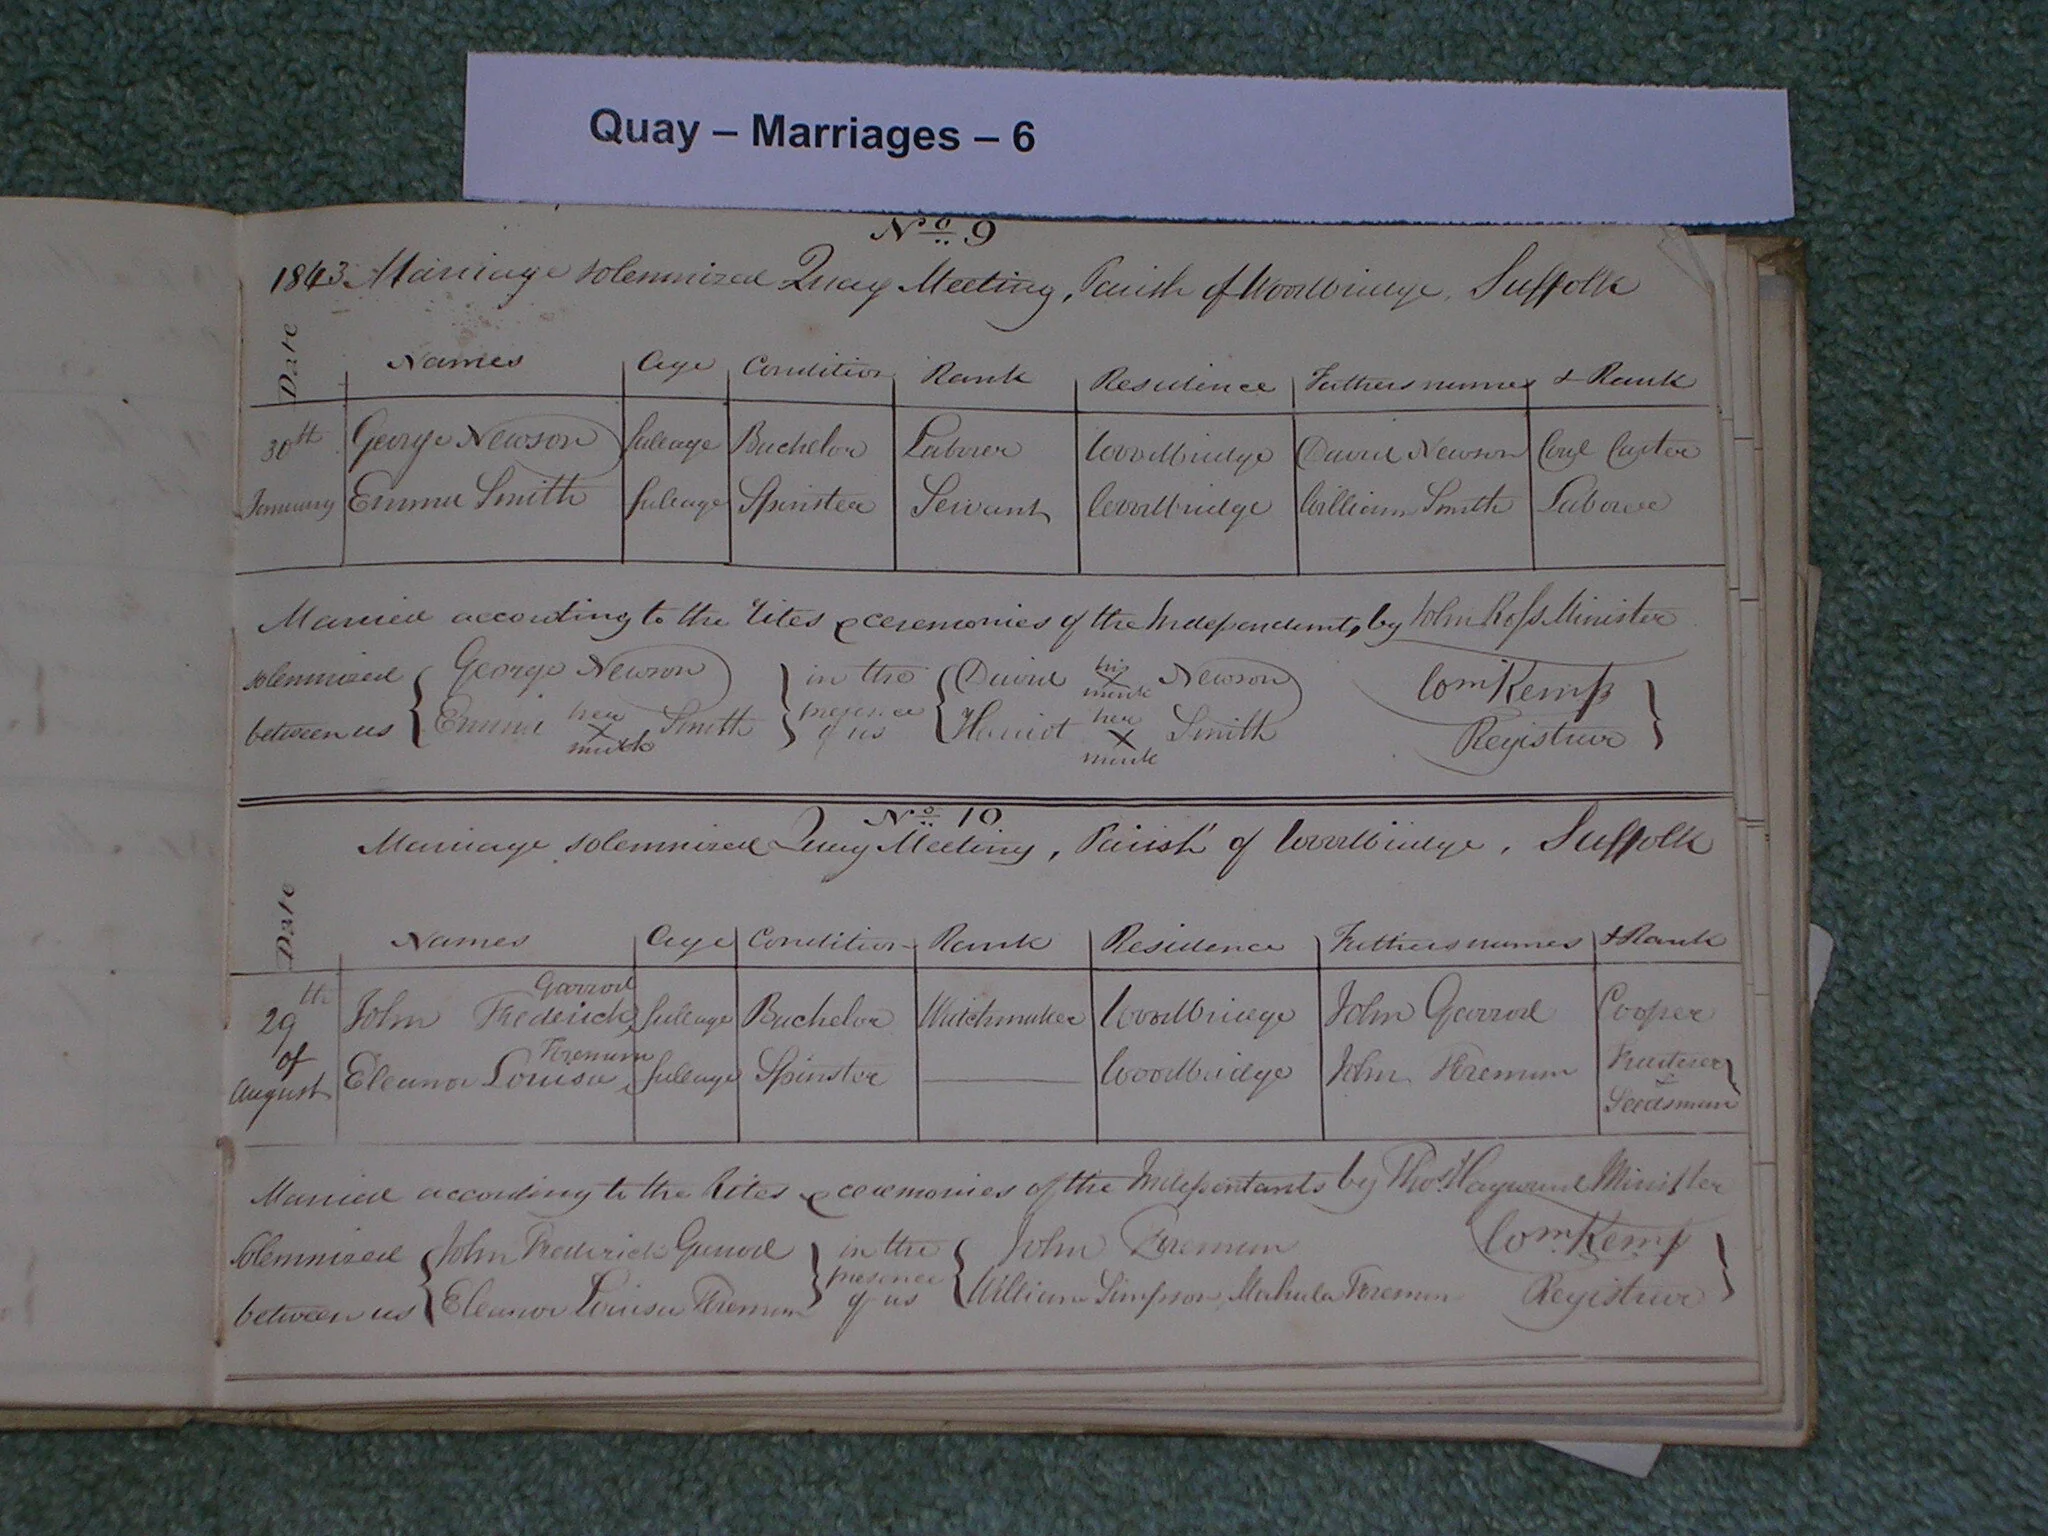 Quay – Marriages – 6
No 9
1843 Marriage solemnized Quay Meeting, Parish of Woodbridge, Suffolk
Date Names Age Condition Rank Residence Fathers names & Rank
30th George Newson full age Bachelor Laborer Woodbridge David Newson Coal Carter
January Emma Smith full age Spinster Servant Woodbridge William Smith Laborer
Married according to the Rites & ceremonies of the Independents, by John Ross Minister
solemnized George Newson in the David his Newson Wm Kemp
X mark
between us Emma her Smith presence of us Harriot her Smith Registrar
X mark X mark
No 10
Marriage solemnized Quay Meeting, Parish of Woodbridge, Suffolk
Date Names Age Condition Rank Residence Fathers names & Rank
Garrod
29th John Frederick full age Bachelor Watchmaker Woodbridge John Garrod Cooper
of Foreman
August Eleanor Louisa full age Spinster Woodbridge John Foreman Fruiterer &
Seedsman
Married according to the Rites & ceremonies of the Indepentants by Thos Hayward Minister
Solemnized John Frederick Garrod in the John Foreman Wm Kemp
between us Eleanor Louisa Foreman presence of us William Simpson, Mahala Foreman Registrar